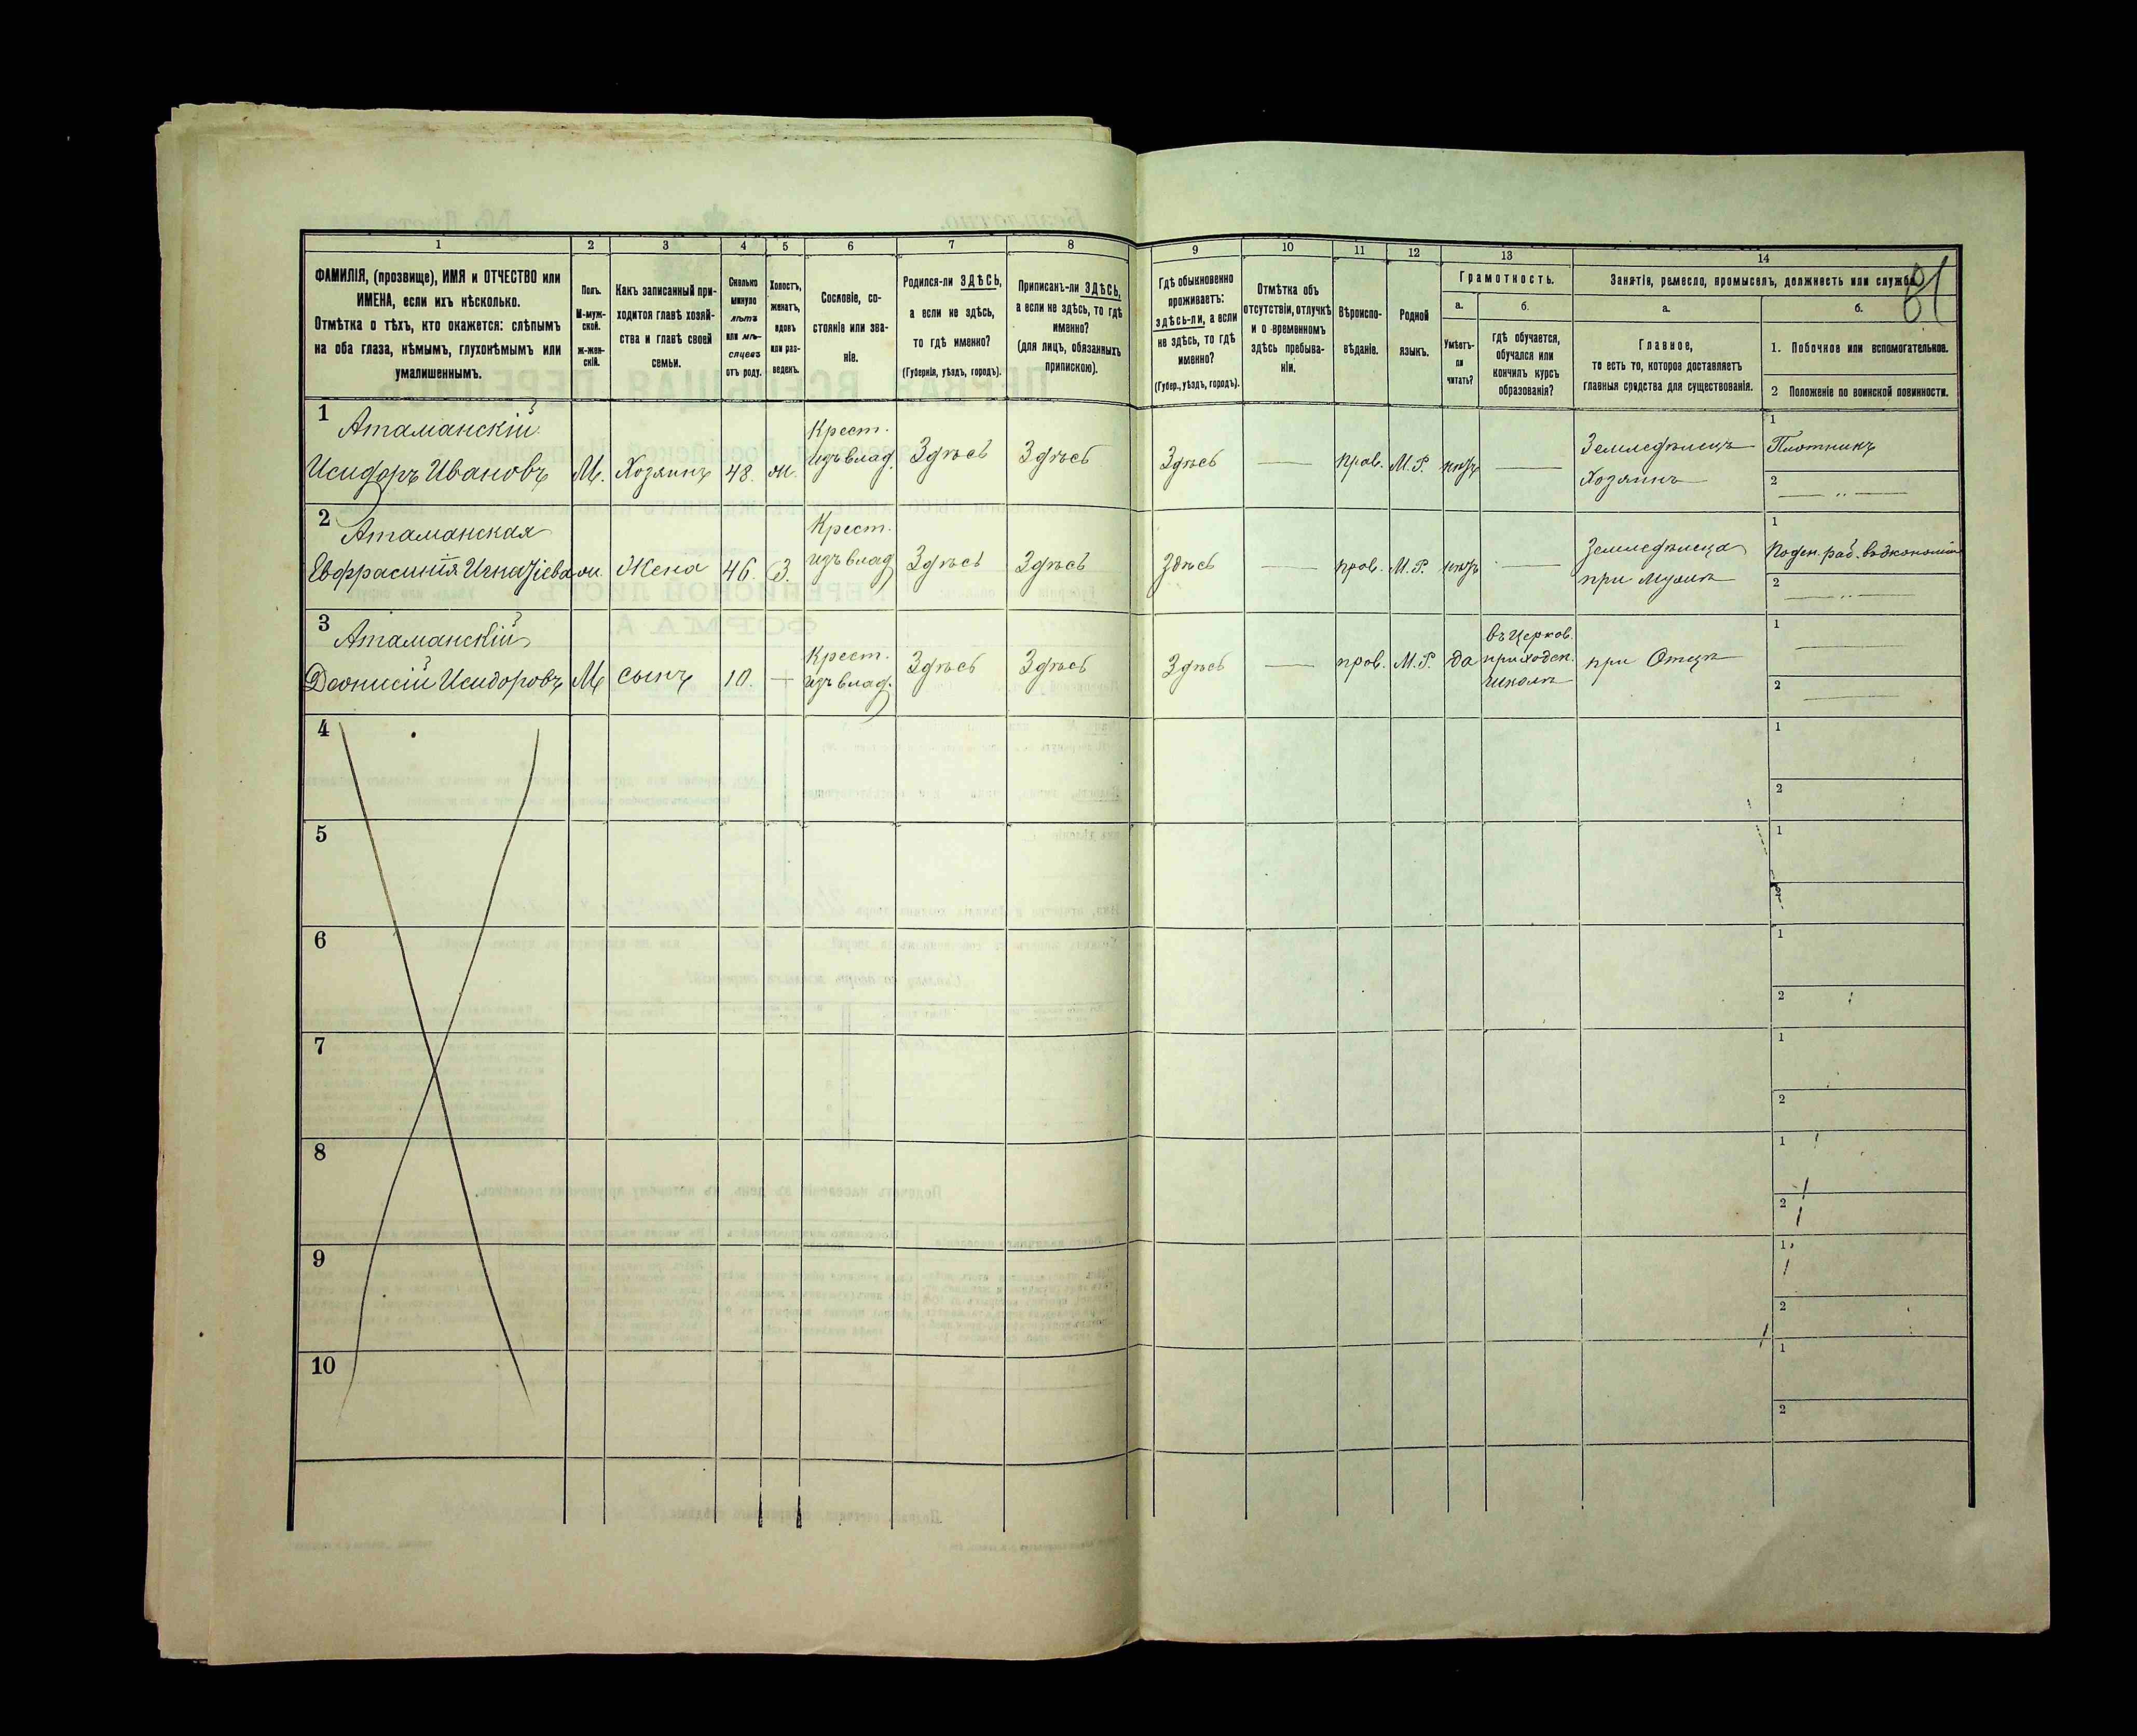 81
1 2 3 4 5 6 7 8 9 10 11 12 13 14
ФАМИЛІЯ, (прозвище), ИМЯ и ОТЧЕСТВО или
ИМЕНА, если ихъ нѣсколько.
Отмѣтка о тѣхъ, кто окажется: слѣпымъ
на оба глаза, нѣмымъ, глухонѣмымъ или
умалишеннымъ.
Полъ.
М-муж-
ской.
ж-жен-
скій.
Какъ записанный при-
ходится главѣ хозяй-
ства и главѣ своей
семьи.
Сколько
минуло
лѣтъ
или мѣ-
сяцевъ
отъ роду.
Холостъ,
женатъ,
вдовъ
или раз-
веденъ.
Сословіе, со-
стояніе или зва-
ніе.
Родился-ли ЗДѢСЬ,
а если не здѣсь,
то гдѣ именно?
(Губернія, уѣздъ, городъ).
Приписанъ-ли ЗДѢСЬ,
а если не здѣсь, то гдѣ
именно?
(для лицъ, обязанныхъ
припискою).
Гдѣ обыкновенно
проживаетъ:
здѣсь-ли, а если
не здѣсь, то гдѣ
именно?
(Губер., уѣздъ, городъ).
Отмѣтка объ
отсутствіи, отлучкѣ
и о временномъ
здѣсь пребыва-
ніи.
Вѣроиспо-
вѣданіе.
Родной
языкъ.
Грамотность.
а.
Умѣетъ-
ли
читать?
б.
гдѣ обучается,
обучался или
кончилъ курсъ
образованія?
Занятіе, ремесло, промыселъ, должность или служба.
а.
Главное,
то есть то, которое доставляетъ
главныя средства для существованія.
б.
1. Побочное или вспомогательное.
2 Положеніе по воинской повинности.
1
Атаманскій
Исидоръ Ивановъ
М.
Хозяинъ
48.
ж.
Крест.
изъ влад.
Здѣсь
Здѣсь
Здѣсь
—
прав.
М.Р.
нѣтъ
—
Земледѣлецъ
Хозяинъ
1
Плотникъ
2
— „ —
2
Атаманская
Евфрасинія Игнатіева
ж.
Жена
46.
З.
Крест.
изъ влад
Здѣсь
Здѣсь
Здѣсь
—
прав.
М.Р.
нѣтъ
—
Земледѣлица
при мужѣ
1
Поден. раб. въ экономіи
2
— „ —
3
Атаманскій
Деонисій Исидоровъ
М
сынъ
10.
—
Крест.
изъ влад.
Здѣсь
Здѣсь
Здѣсь
—
прав.
М.Р.
да
въ церков.
приходск.
школѣ
при Отцѣ
1
2
—
4
1
2
5
1
2
6
1
2
7
1
2
8
1
2
9
1
2
10
1
2